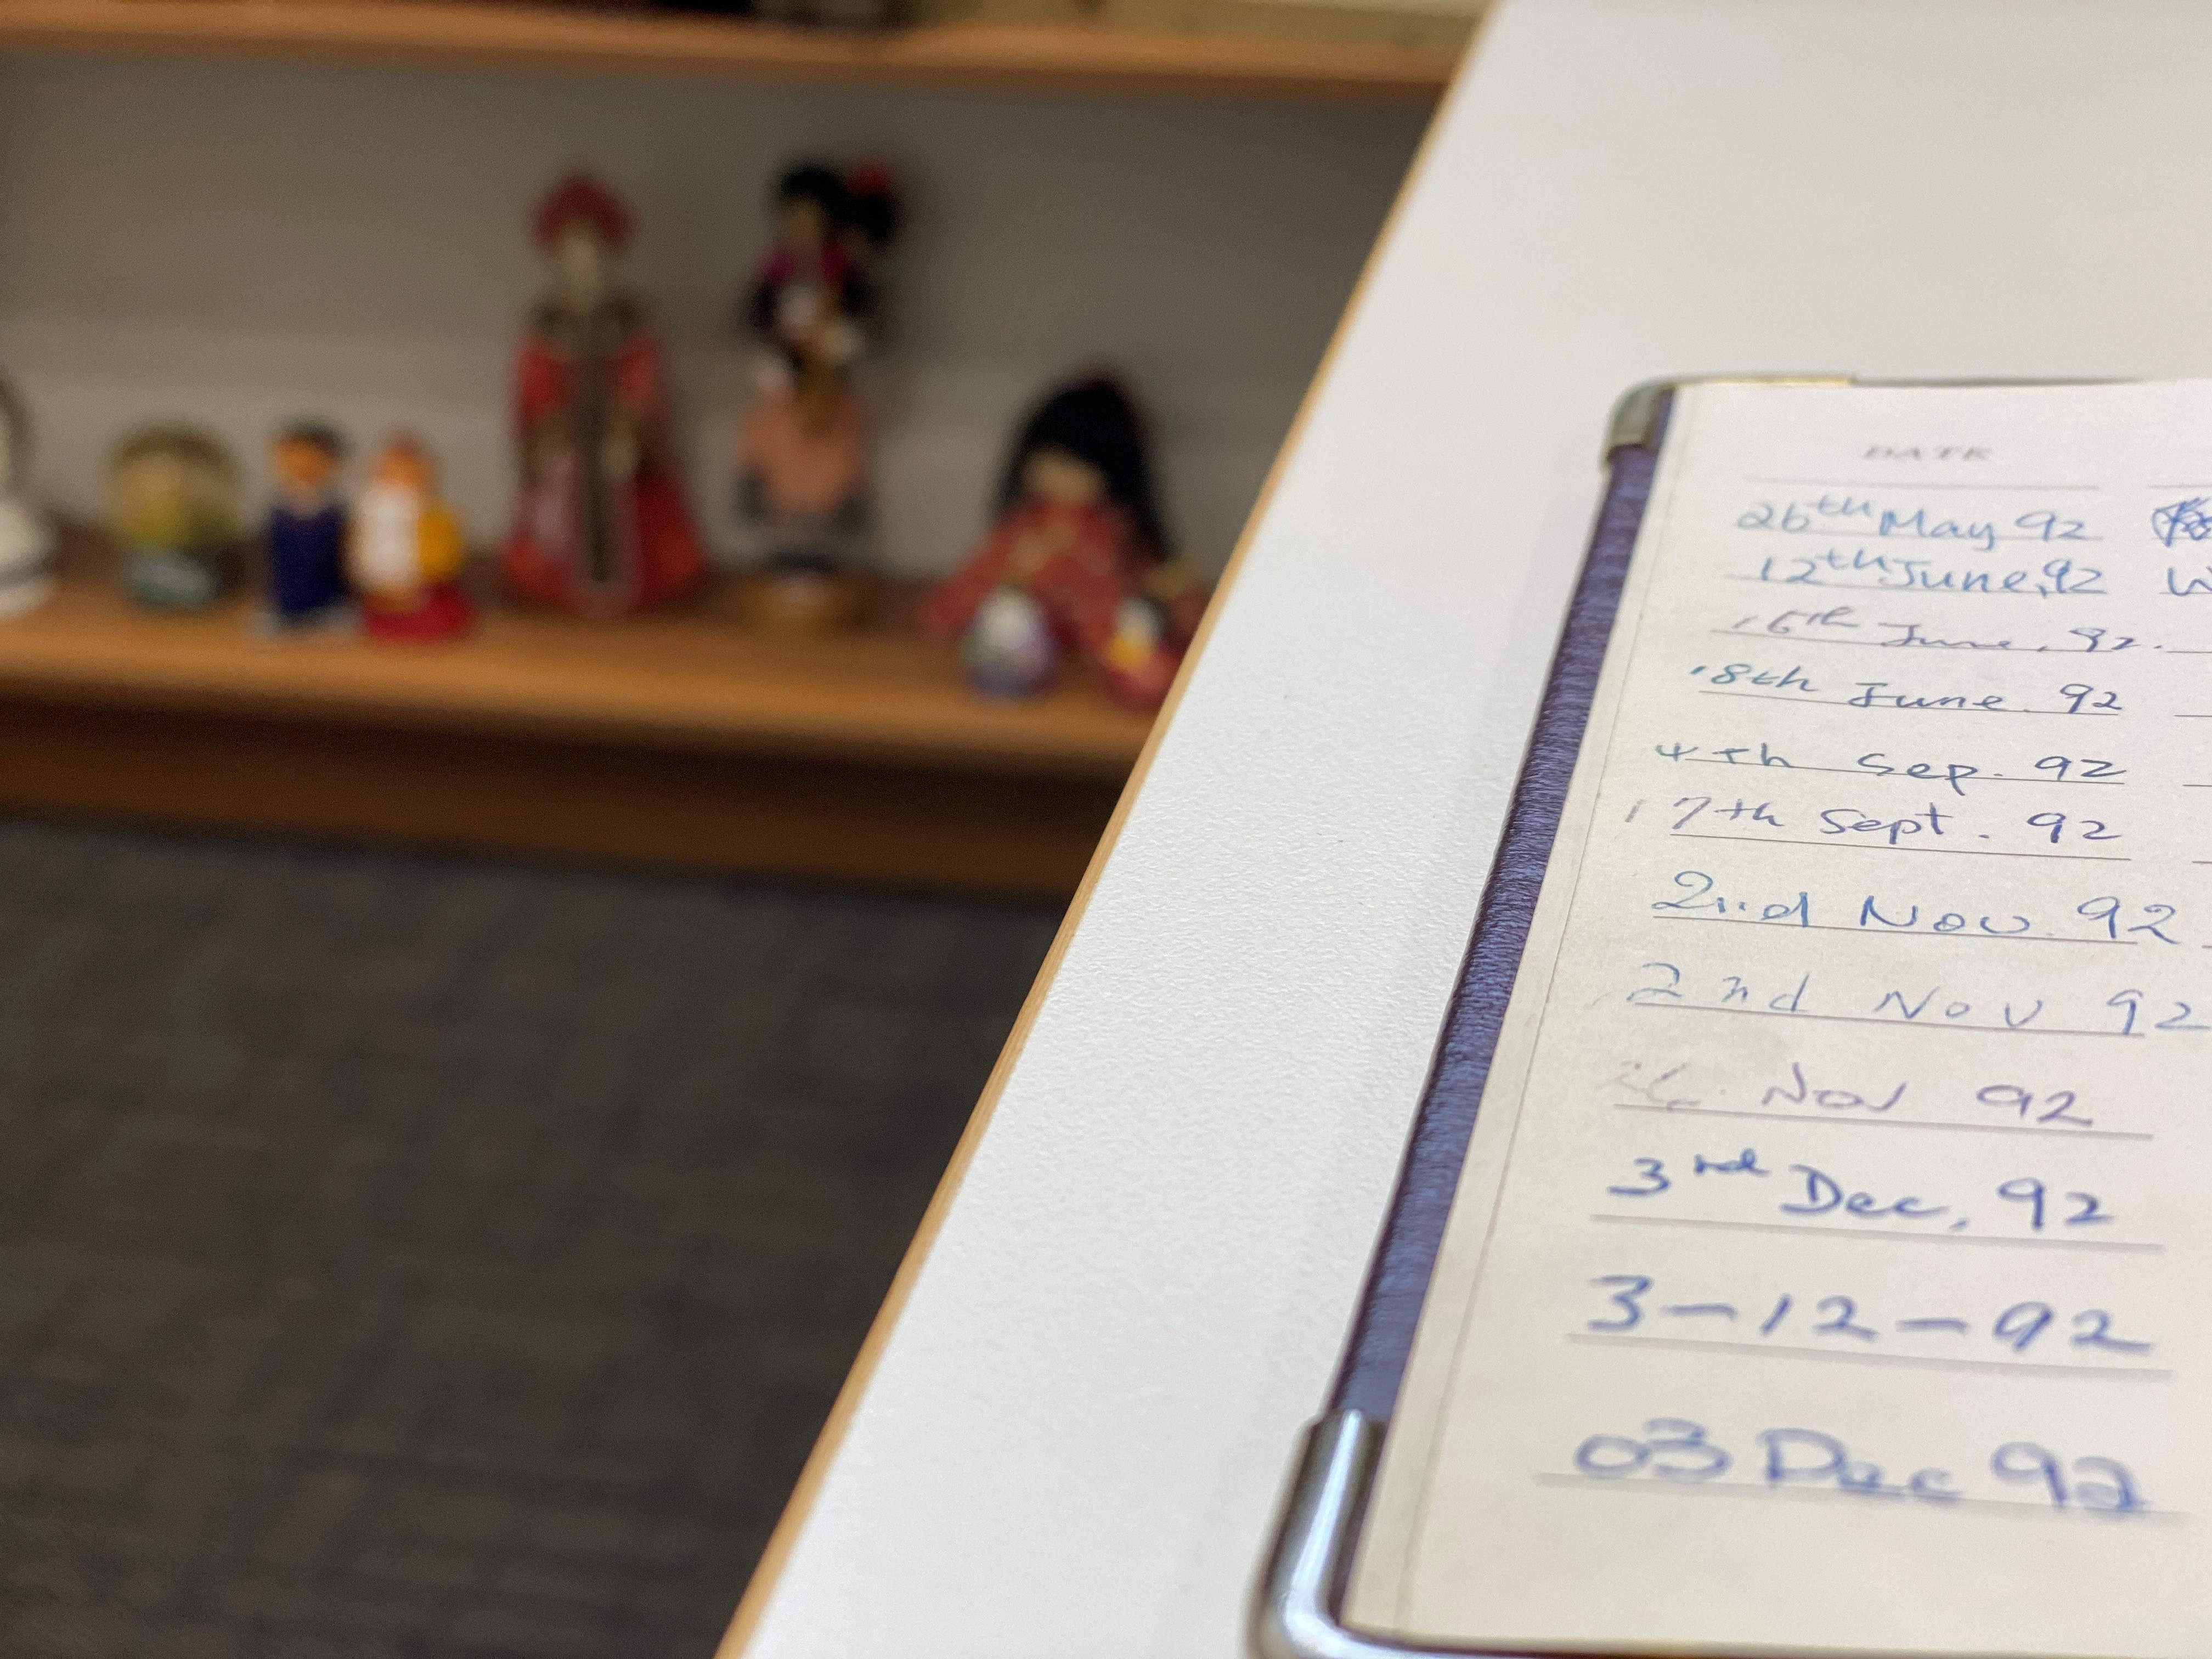 DATE
26th May 92
12th June, 92
16th June, 92.
18th June. 92
4th Sep. 92
17th Sept. 92
2nd Nov. 92
2nd Nov 92
Nov 92
3rd Dec, 92
3-12-92
03 Dec 92